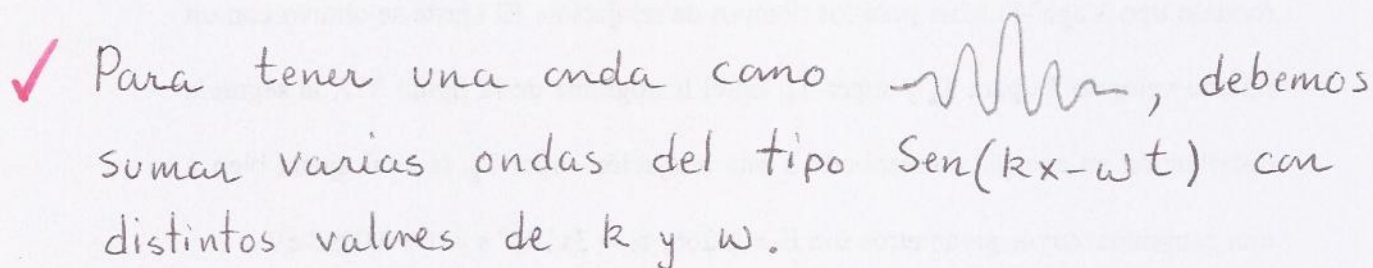 ✓ Para tener una onda como , debemos
sumar varias ondas del tipo Sen(kx-ωt) con
distintos valores de k y ω.